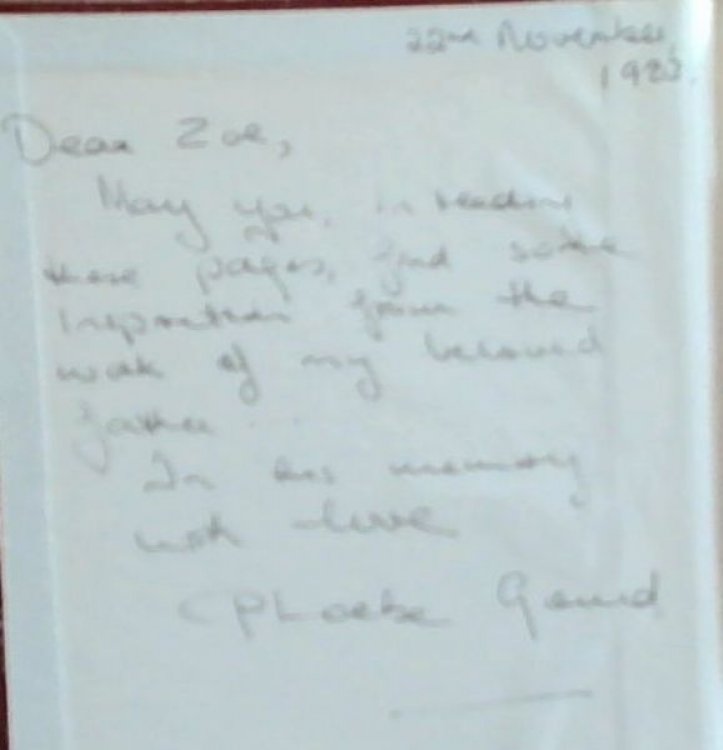 22nd November,
Dear Zoe,
May you, in reading
these pages, find some
inspiration from the
work of my beloved
father...
In his memory
with love
Phoebe